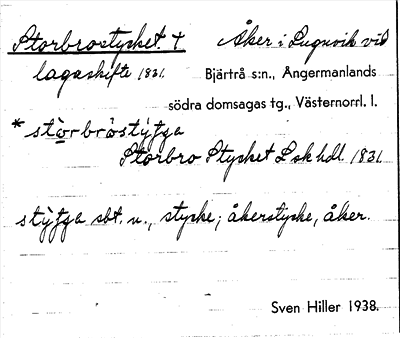 Storbrostycket. † Åker i Lugnvik vid
lagaskifte 1831. Bjärtrå s:n., Ångermanlands
södra domsagas tg., Västernorrl. l.
Storbro Stycket L sk hdl. 1831
sbt. n., stycke; åkerstycke, åker.
Sven Hiller 1938.